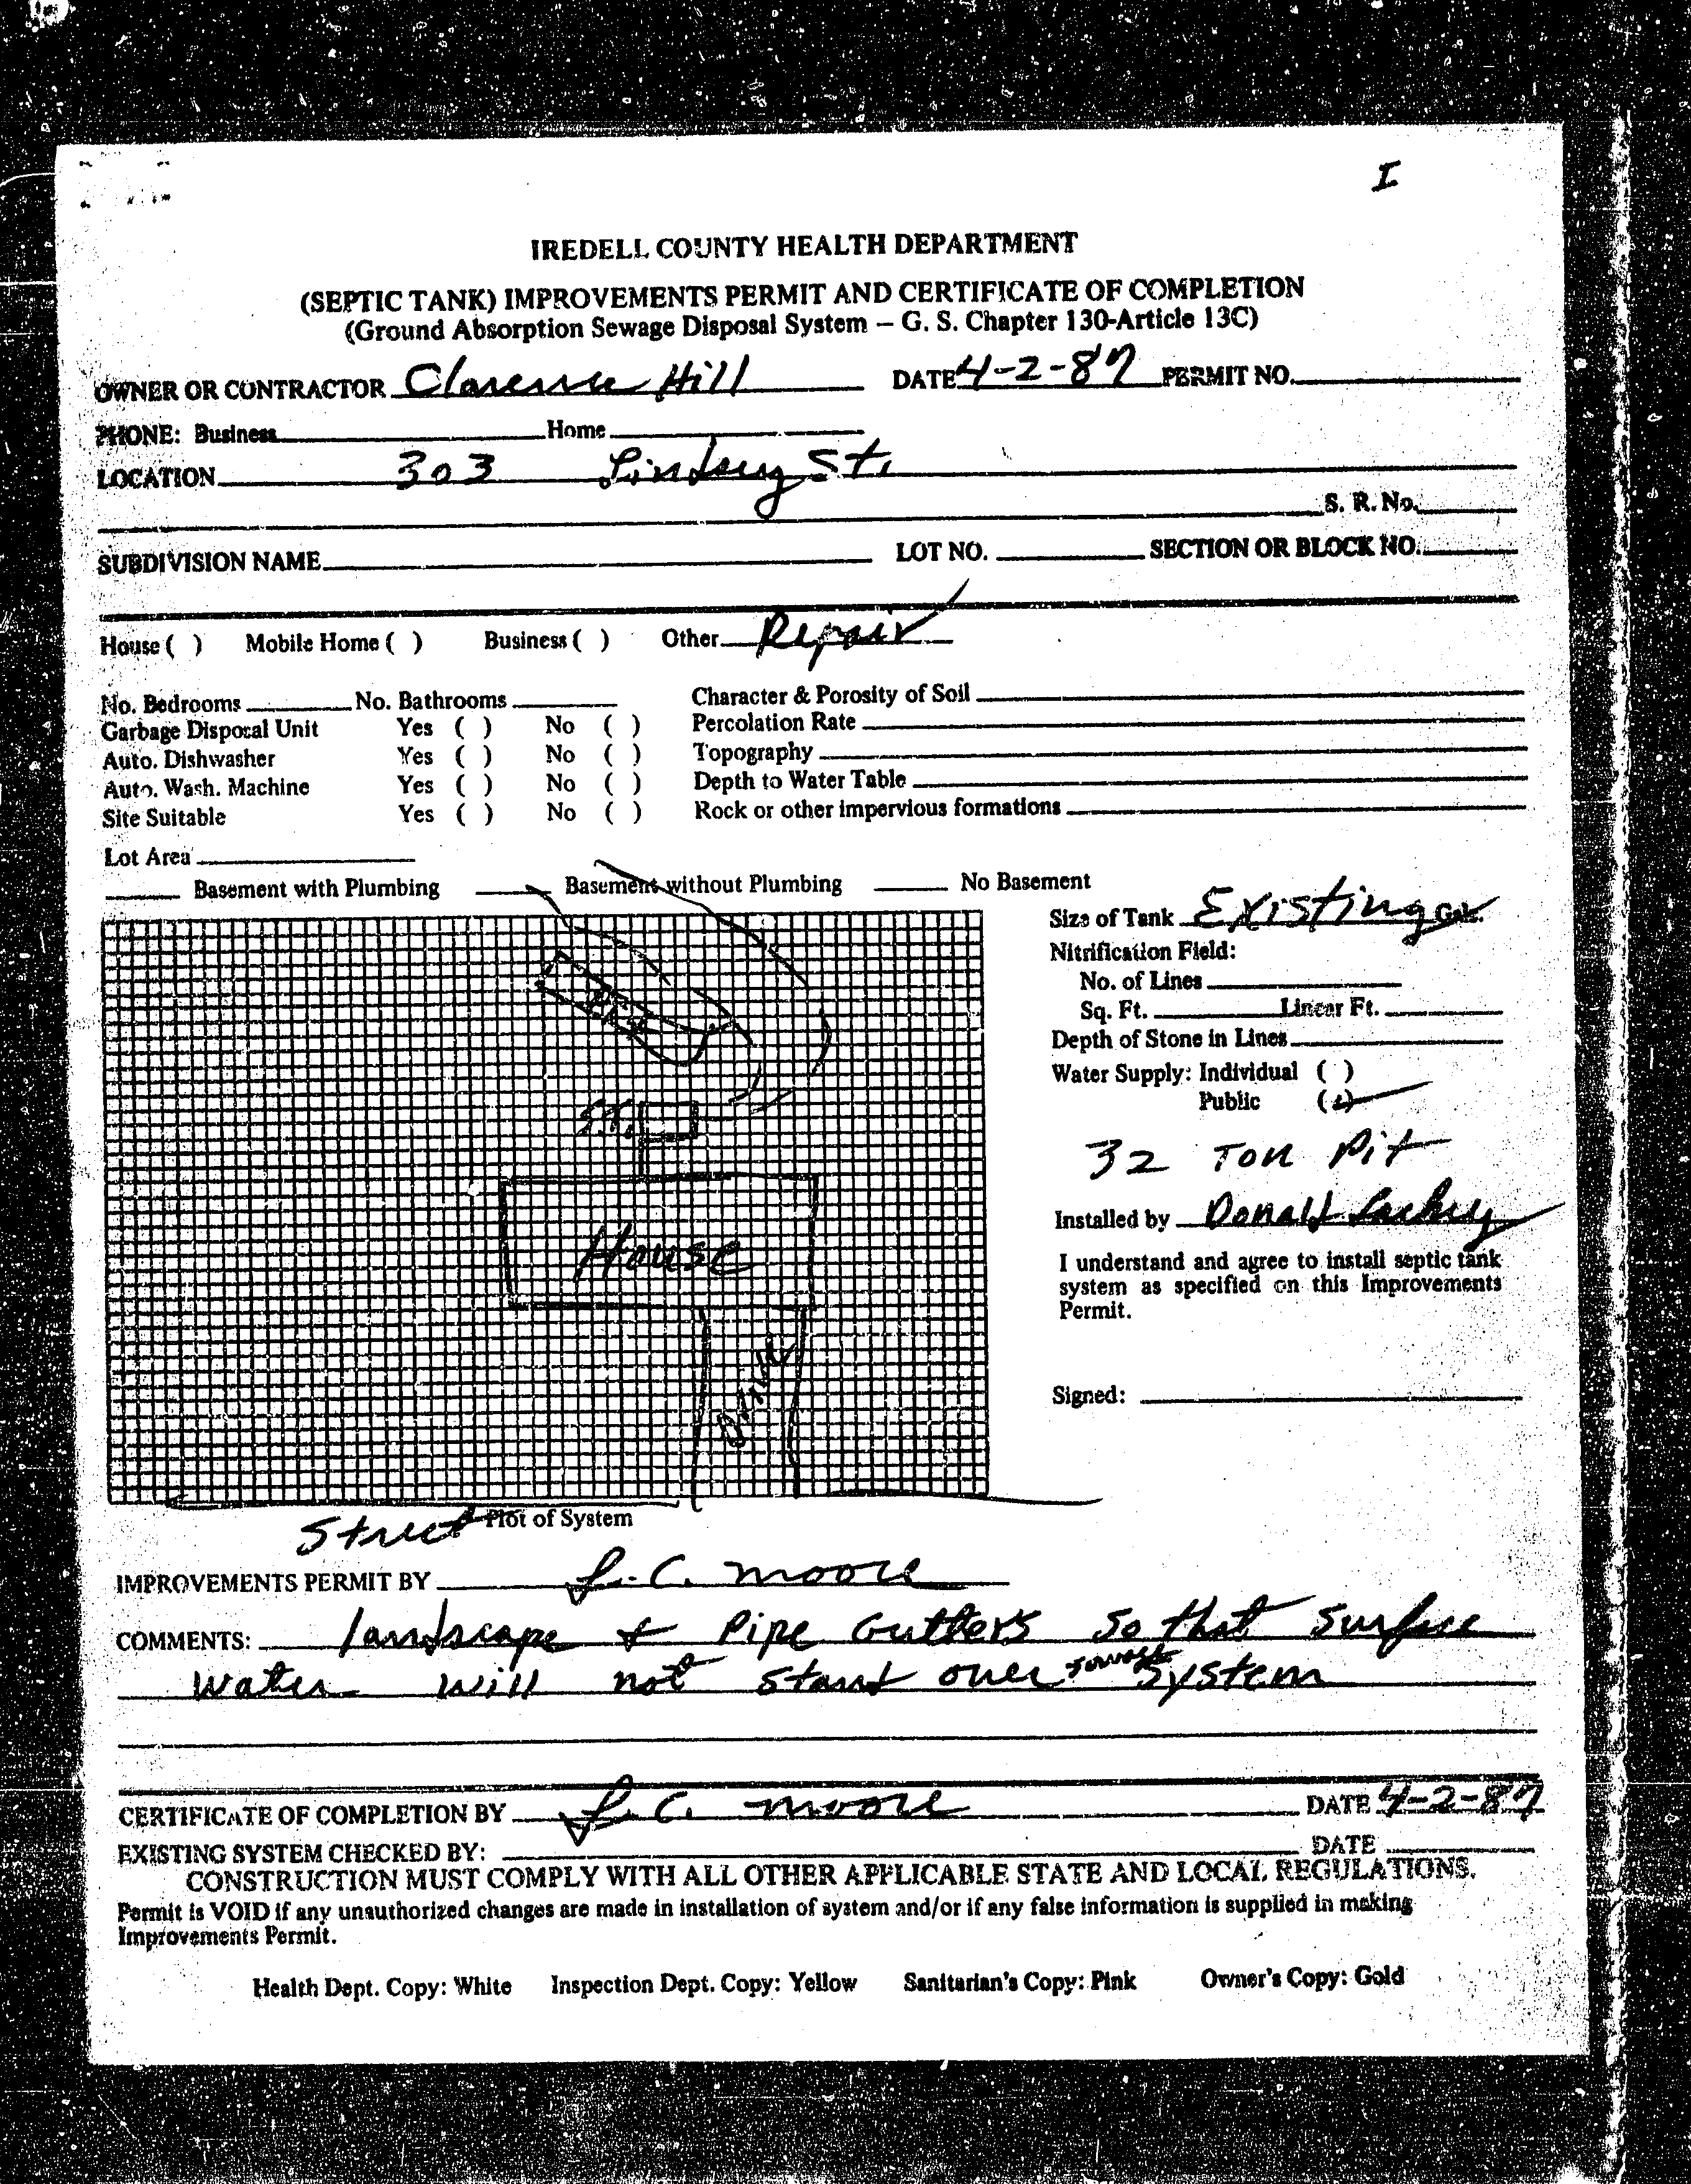 I
IREDELL COUNTY HEALTH DEPARTMENT
(SEPTIC TANK) IMPROVEMENTS PERMIT AND CERTIFICATE OF COMPLETION
(Ground Absorption Sewage Disposal System – G. S. Chapter 130-Article 13C)
OWNER OR CONTRACTOR Clarence Hill DATE 4-2-87 PERMIT NO.
PHONE: Business Home
LOCATION 303 Lindsey St.
S. R. No.
SUBDIVISION NAME LOT NO. SECTION OR BLOCK NO.
House ( ) Mobile Home ( ) Business ( ) Other Repair
No. Bedrooms No. Bathrooms Character & Porosity of Soil
Garbage Disposal Unit Yes ( ) No ( ) Percolation Rate
Auto. Dishwasher Yes ( ) No ( ) Topography
Auto. Wash. Machine Yes ( ) No ( ) Depth to Water Table
Site Suitable Yes ( ) No ( ) Rock or other impervious formations
Lot Area
Basement with Plumbing Basement without Plumbing No Basement
Size of Tank Existing Gals.
Nitrification Field:
No. of Lines
Sq. Ft. Linear Ft.
Depth of Stone in Lines
Water Supply: Individual ( )
Public (✓)
32 Ton Pit
Installed by Donald Lackey
I understand and agree to install septic tank
system as specified on this Improvements
Permit.
Signed:
House
Drive
Street Plot of System
IMPROVEMENTS PERMIT BY L. C. Moore
COMMENTS: landscape & Pipe Gutters so that surface
water will not stand over sewage system
CERTIFICATE OF COMPLETION BY L. C. Moore DATE 4-2-87
EXISTING SYSTEM CHECKED BY: DATE
CONSTRUCTION MUST COMPLY WITH ALL OTHER APPLICABLE STATE AND LOCAL REGULATIONS.
Permit is VOID if any unauthorized changes are made in installation of system and/or if any false information is supplied in making
Improvements Permit.
Health Dept. Copy: White Inspection Dept. Copy: Yellow Sanitarian's Copy: Pink Owner's Copy: Gold